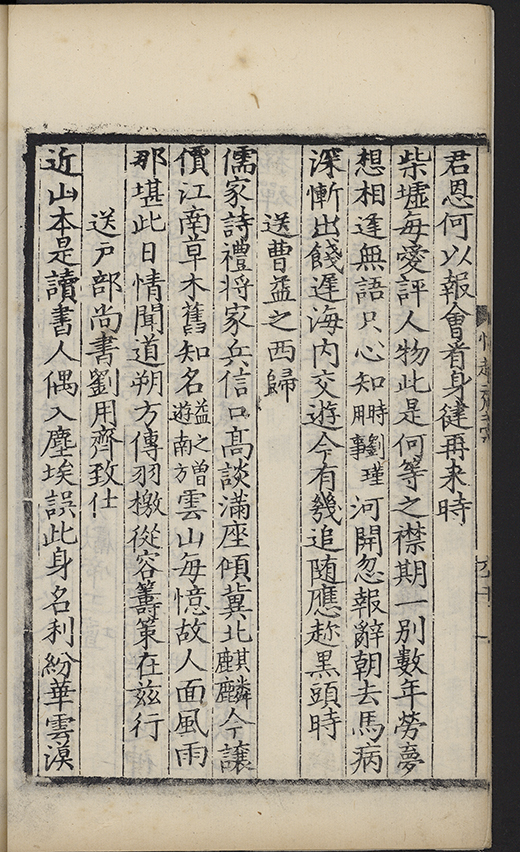 君恩何以報會看身健再来時
柴墟毎愛評人物此是何等之襟期一别數年勞夢
想相逢無語只心知時劉瑾用事河開忽報辭朝去馬病
深慚出餞遲海内交遊今有幾追随應趂黒頭時
送曹益之西歸
儒家詩禮将家兵信口髙談滿座傾冀北麒麟今讓
價江南草木舊知名益之曽遊南方雲山毎憶故人面風雨
那堪此日情聞道朔方傳羽檄從容籌策在兹行
送户部尚書劉用齊致仕
近山本是讀書人偶入塵埃誤此身名利紛華雲漠